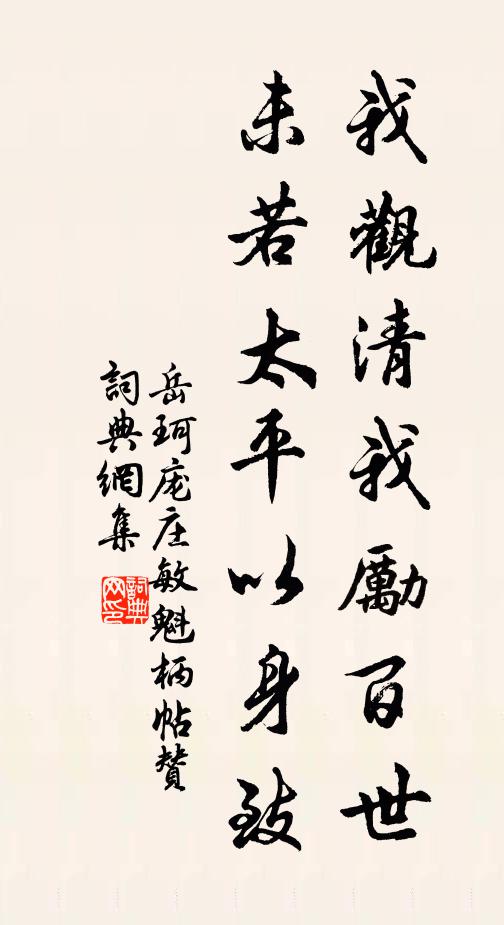 我觀清我勵百世
未若太平以身致
岳珂庞庄敏魁柄帖贊
詞典網集
詞典網印